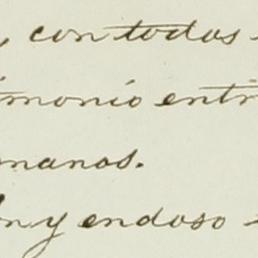 , con todos
imonio entr
manos.
n y endoso